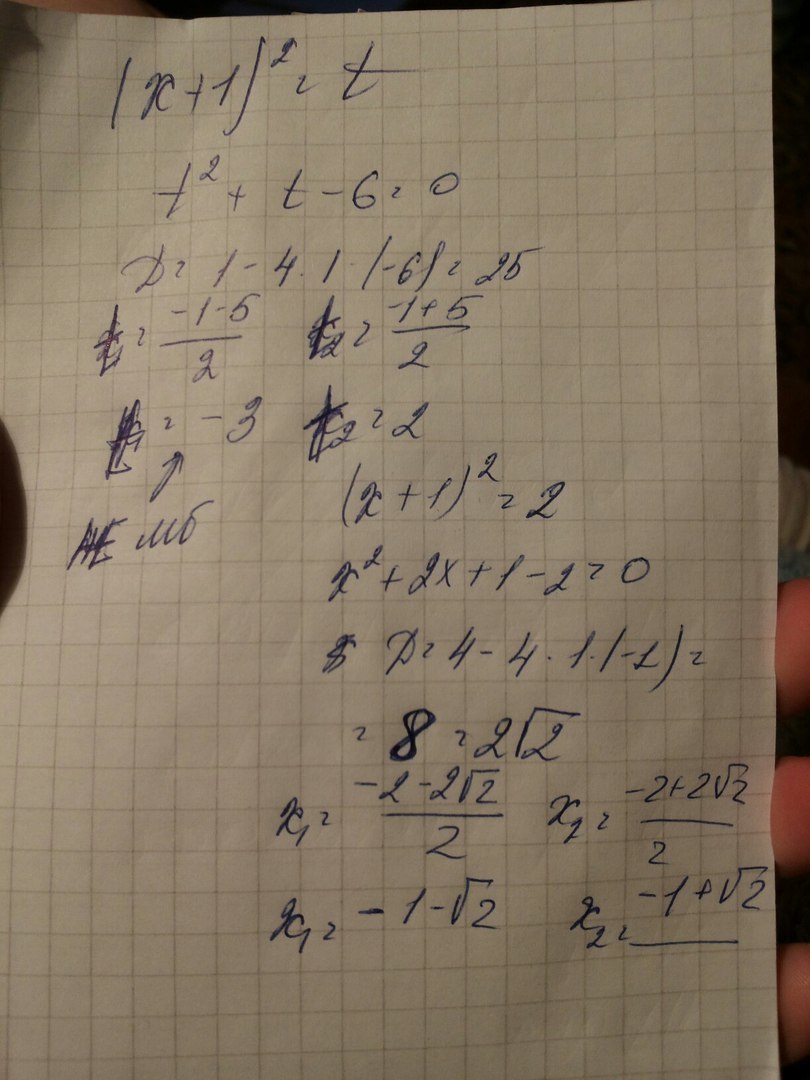 (x+1)² = t
t² + t - 6 = 0
D = 1 - 4 · 1 · (-6) = 25
t₁ = (-1-5)/2 t₂ = (-1+5)/2
t₁ = -3 t₂ = 2
(x+1)² = 2
не мб
x² + 2x + 1 - 2 = 0
D = 4 - 4 · 1 · (-1) =
= 8 = 2√2
x₁ = (-2-2√2)/2 x₂ = (-2+2√2)/2
x₁ = -1-√2 x₂ = -1+√2